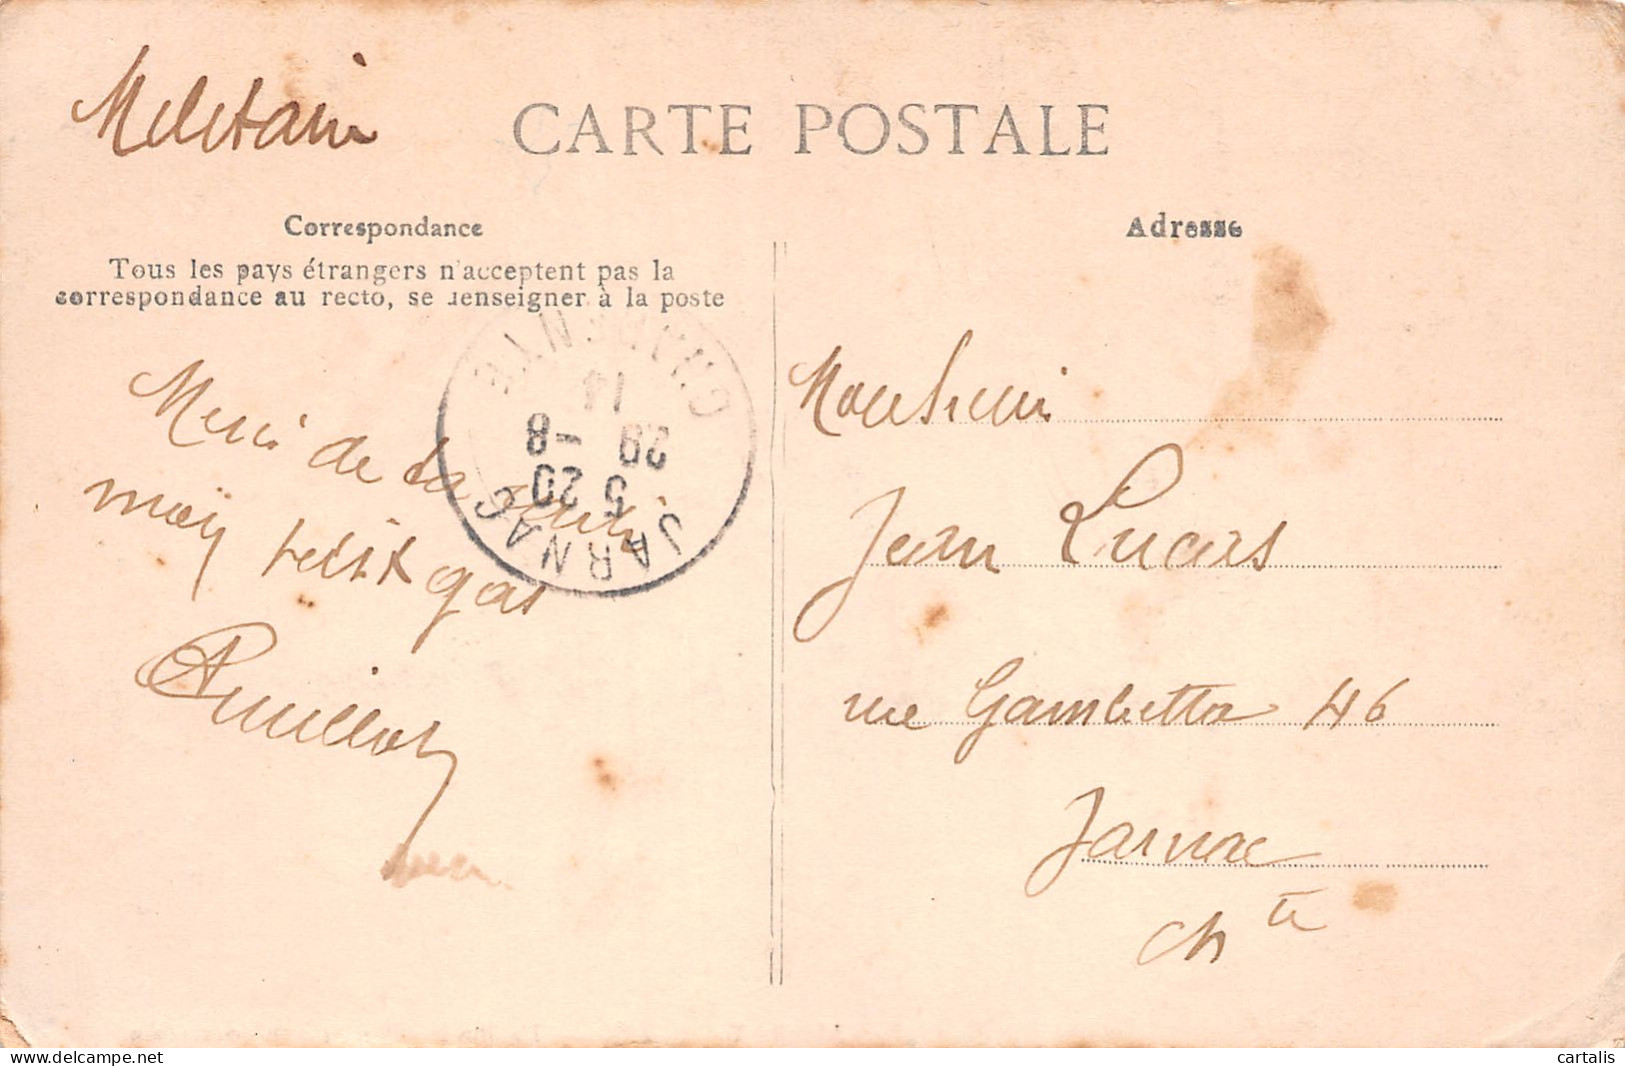 Militaire
CARTE POSTALE
Correspondance
Tous les pays étrangers n'acceptent pas la
correspondance au recto, se renseigner à la poste
Merci de ta carte
mon petit gas
Adresse
Monsieur
Jean Lucas
rue Gambetta 46
Jarnac
Chte
JARNAC
5 20
28 -8
14
CHARENTE
cartalis
www.delcampe.net